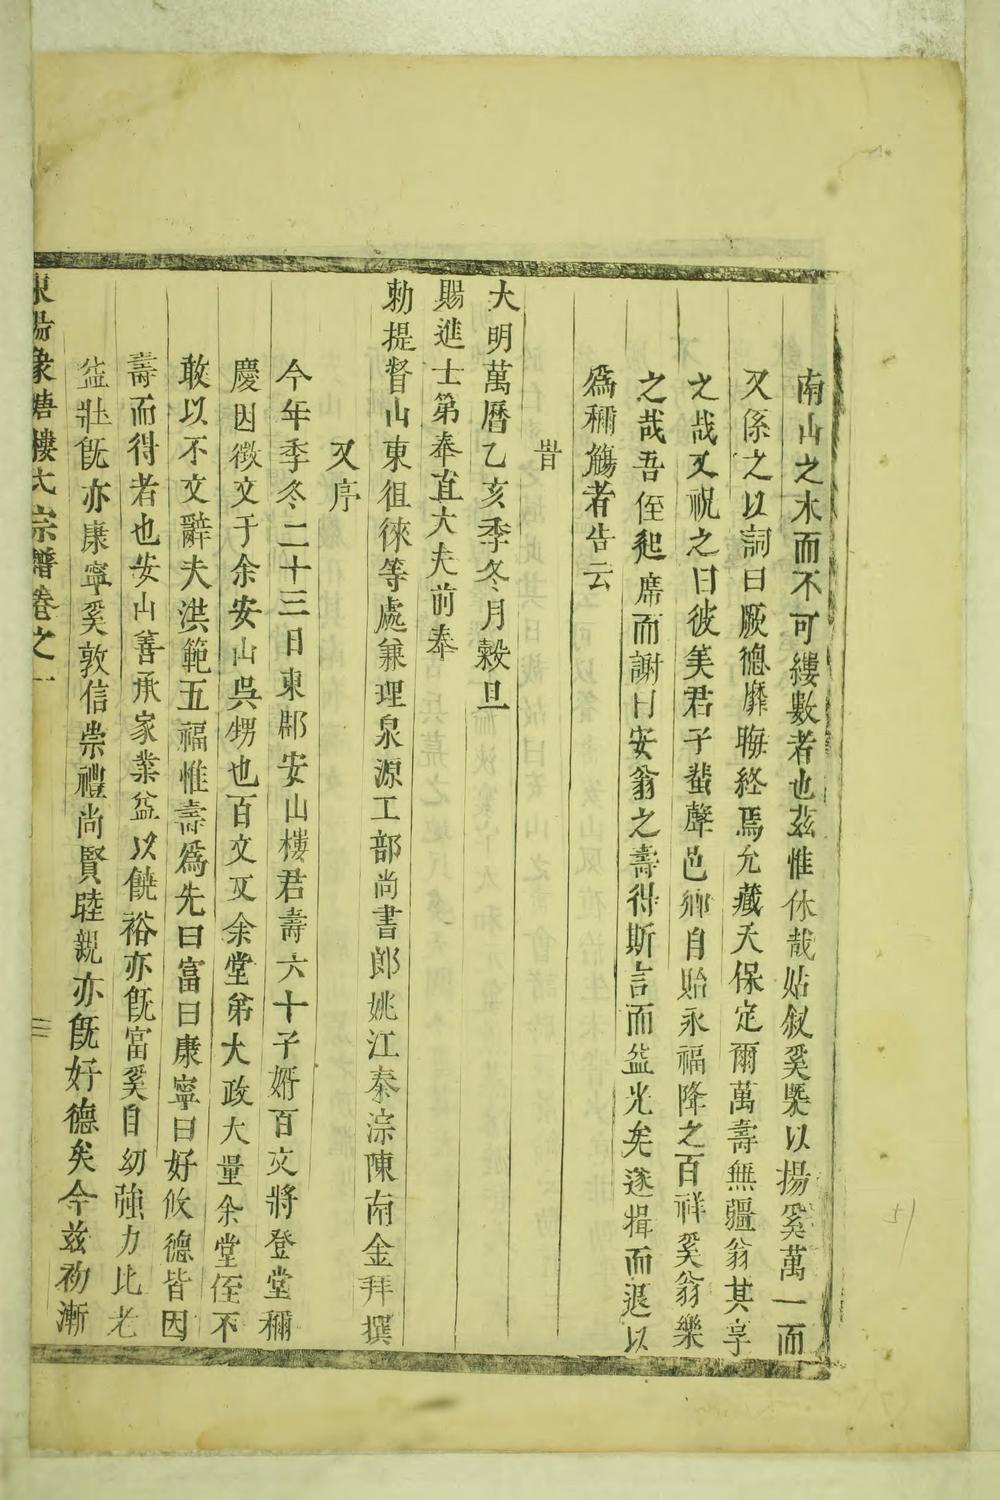 南山之木而不可縷數者也茲惟休哉姑叙奚槩以揚奚萬一而
又係之以詞曰厥德靡晦終焉允藏天保定爾萬壽無疆翁其享
之哉又祝之曰彼美君子蜚聲邑鄉自貽永福降之百祥奚翁樂
之哉吾侄起席而謝曰安翁之壽得斯言而益光矣遂揖而退以
爲稱觴者告云
旹
大明萬曆乙亥季冬月榖旦
賜進士第奉直大夫前奉
勅提督山東徂徠等處兼理泉源工部尚書郎姚江秦淙陳南金拜撰
又序
今年季冬二十三日東郡安山樓君壽六十子婿百文將登堂稱
慶因徵文于余安山吳甥也百文又余堂弟大政大量余堂侄不
敢以不文辭夫洪範五福惟壽爲先曰富曰康寧曰好攸德皆因
壽而得者也安山善承家業益以饒裕亦旣富奚自幼強力比老
益壯旣亦康寧奚敦信崇禮尚賢睦親亦旣好德矣今兹初漸
東陽象塘樓氏宗譜卷之一